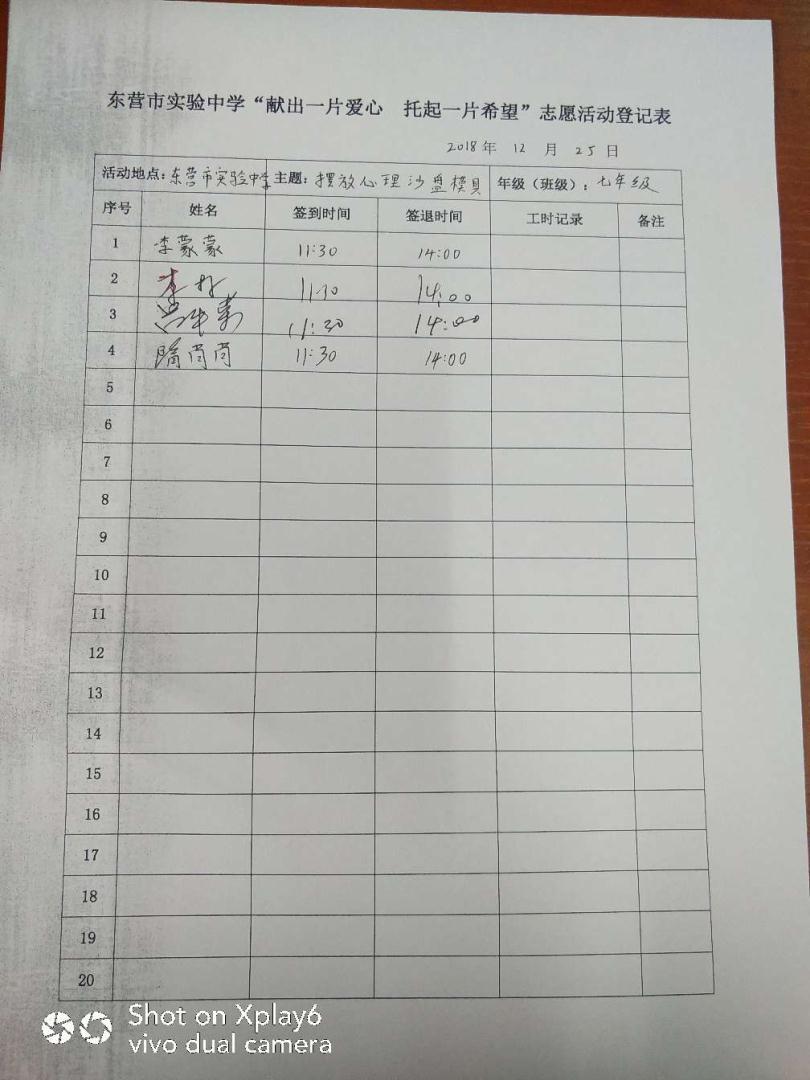 东营市实验中学“献出一片爱心 托起一片希望”志愿活动登记表
2018年 12 月 25 日
活动地点：东营市实验中学 主题：摆放心理沙盘模具 年级（班级）：七年级
序号 姓名 签到时间 签退时间 工时记录 备注
1 李蒙蒙 11:30 14:00
2 李 11:30 14:00
3 11:30 14:00
4 隋尚尚 11:30 14:00
5
6
7
8
9
10
11
12
13
14
15
16
17
18
19
20
Shot on Xplay6
vivo dual camera